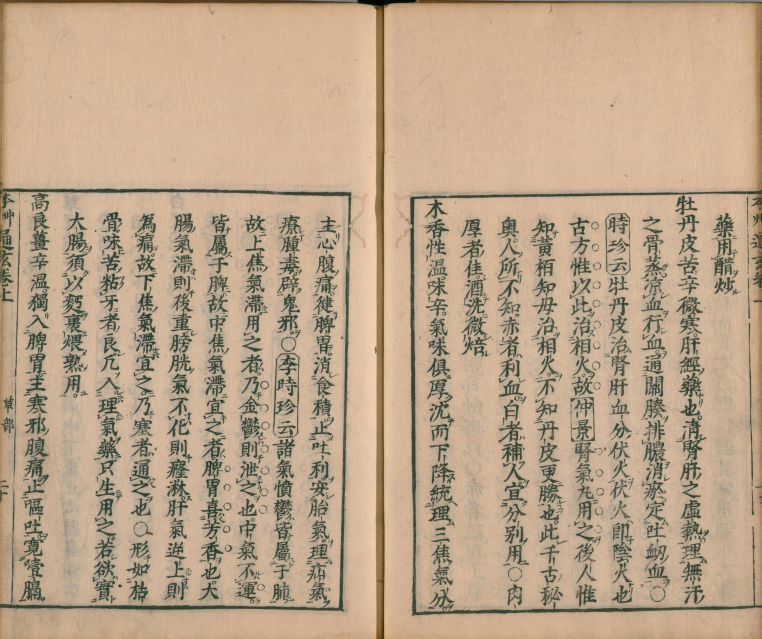 藥用醋炒
牡丹皮苦辛微寒肝經藥也清腎肝之虛熱理無汗
之骨蒸涼血行血通關腠排膿消瘀定吐衂血○
時珍云牡丹皮治腎肝血分伏火伏火即陰火也
古方惟以此治相火故仲景腎氣丸用之後人惟
知黃栢知母治相火不知丹皮更勝也此千古秘
奥人所不知赤者利血白者補人宜分別用○肉
厚者佳酒洗微焙
木香性温味辛氣味俱厚沉而下降統理三焦氣分
主心腹痛健脾胃消食積止吐利安胎氣理疝氣
療腫毒辟鬼邪○李時珍云諸氣憤鬱皆屬于肺
故上焦氣滯用之者乃金鬱則泄之也中氣不運
皆屬于脾故中焦氣滯宜之者脾胃喜芳香也大
腸氣滯則後重膀胱氣不化則癃淋肝氣逆上則
為痛故下焦氣滯宜之乃塞者通之也○形如枯
骨味苦粘牙者良凡入理氣藥只生用之若欲實
大腸須以麪裹煨熟用
高良薑辛温獨入脾胃主寒邪腹痛止嘔吐寛噎膈
本艸通玄卷上
草部
二十